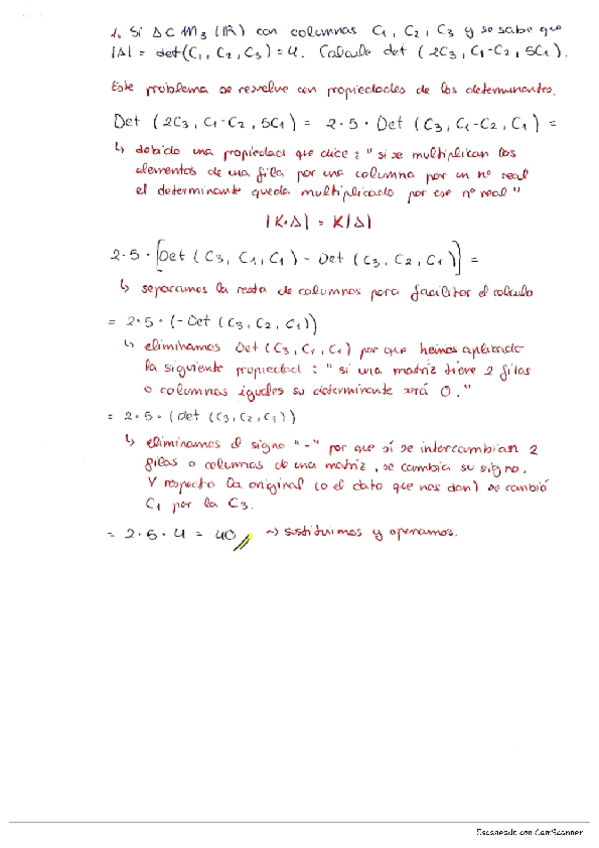 1. Si A ⊂ M3 (IR) con columnas C1, C2, C3 y se sabe que
|A| = det(C1, C2, C3) = 4. Calcula det (2C3, C1-C2, 5C1).
Este problema se resuelve con propiedades de los determinantes.
Det (2C3, C1-C2, 5C1) = 2·5· Det (C3, C1-C2, C1) =
↳ debido una propiedad que dice: "si se multiplican los
elementos de una fila por una columna por un nº real
el determinante queda multiplicado por ese nº real"
|K·A| = K|A|
2·5·[Det (C3, C1, C1) - Det (C3, C2, C1)] =
↳ separamos la resta de columnas para facilitar el calculo
= 2·5·(-Det (C3, C2, C1))
↳ eliminamos Det (C3, C1, C1) por que hemos aplicado
la siguiente propiedad: "si una matriz tiene 2 filas
o columnas iguales su determinante será 0."
= 2·5·(det (C3, C2, C1))
↳ eliminamos el signo "-" por que si se intercambian 2
filas o columnas de una matriz, se cambia su signo.
Y respecto la original (o el dato que nos dan) se cambió
C1 por la C3.
= 2·5·4 = 40 ~> sustituimos y operamos.
Escaneado con CamScanner